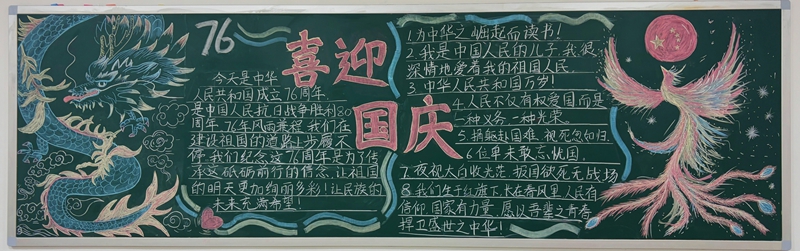 76
喜迎
国庆
今天是中华
人民共和国成立76周年
是中国人民抗日战争胜利80
周年 76年风雨兼程 我们在
建设祖国的道路上步履不
停 我们纪念这76周年是为了传
承这砥砺前行的信念 让祖国
的明天更加绚丽多彩! 让民族的
未来充满希望!
1.为中华之崛起而读书!
2.我是中国人民的儿子 我很
深情地爱着我的祖国人民.
3.中华人民共和国万岁!
4.人民不仅有权爱国而是
一种义务 一种光荣.
5.捐躯赴国难 视死忽如归.
6.位卑未敢忘忧国.
7.夜视太白收光芒 报国欲死无战场
8.我们生于红旗下 长在春风里 人民有
信仰 国家有力量 愿以吾辈之青春
捍卫盛世之中华!